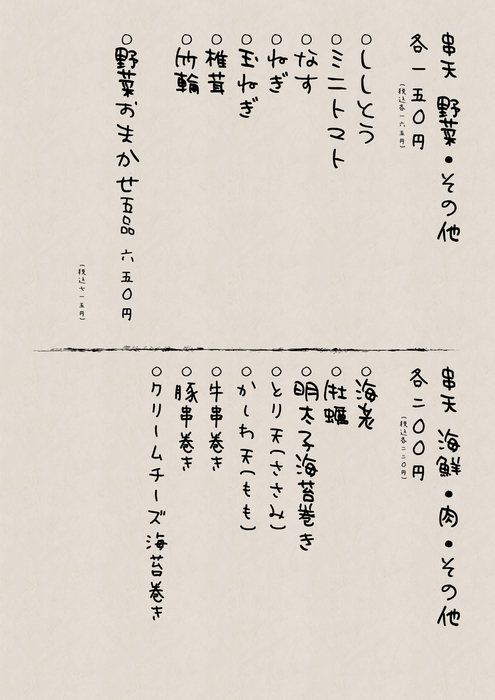 串天 野菜・その他
各一五〇円
(税込各一六五円)
○ししとう
○ミニトマト
○なす
○ねぎ
○玉ねぎ
○椎茸
○竹輪
○野菜おまかせ五品 六五〇円
(税込七一五円)
串天 海鮮・肉・その他
各二〇〇円
(税込各二二〇円)
○海老
○牡蠣
○明太子海苔巻き
○とり天(ささみ)
○かしわ天(もも)
○牛串巻き
○豚串巻き
○クリームチーズ海苔巻き